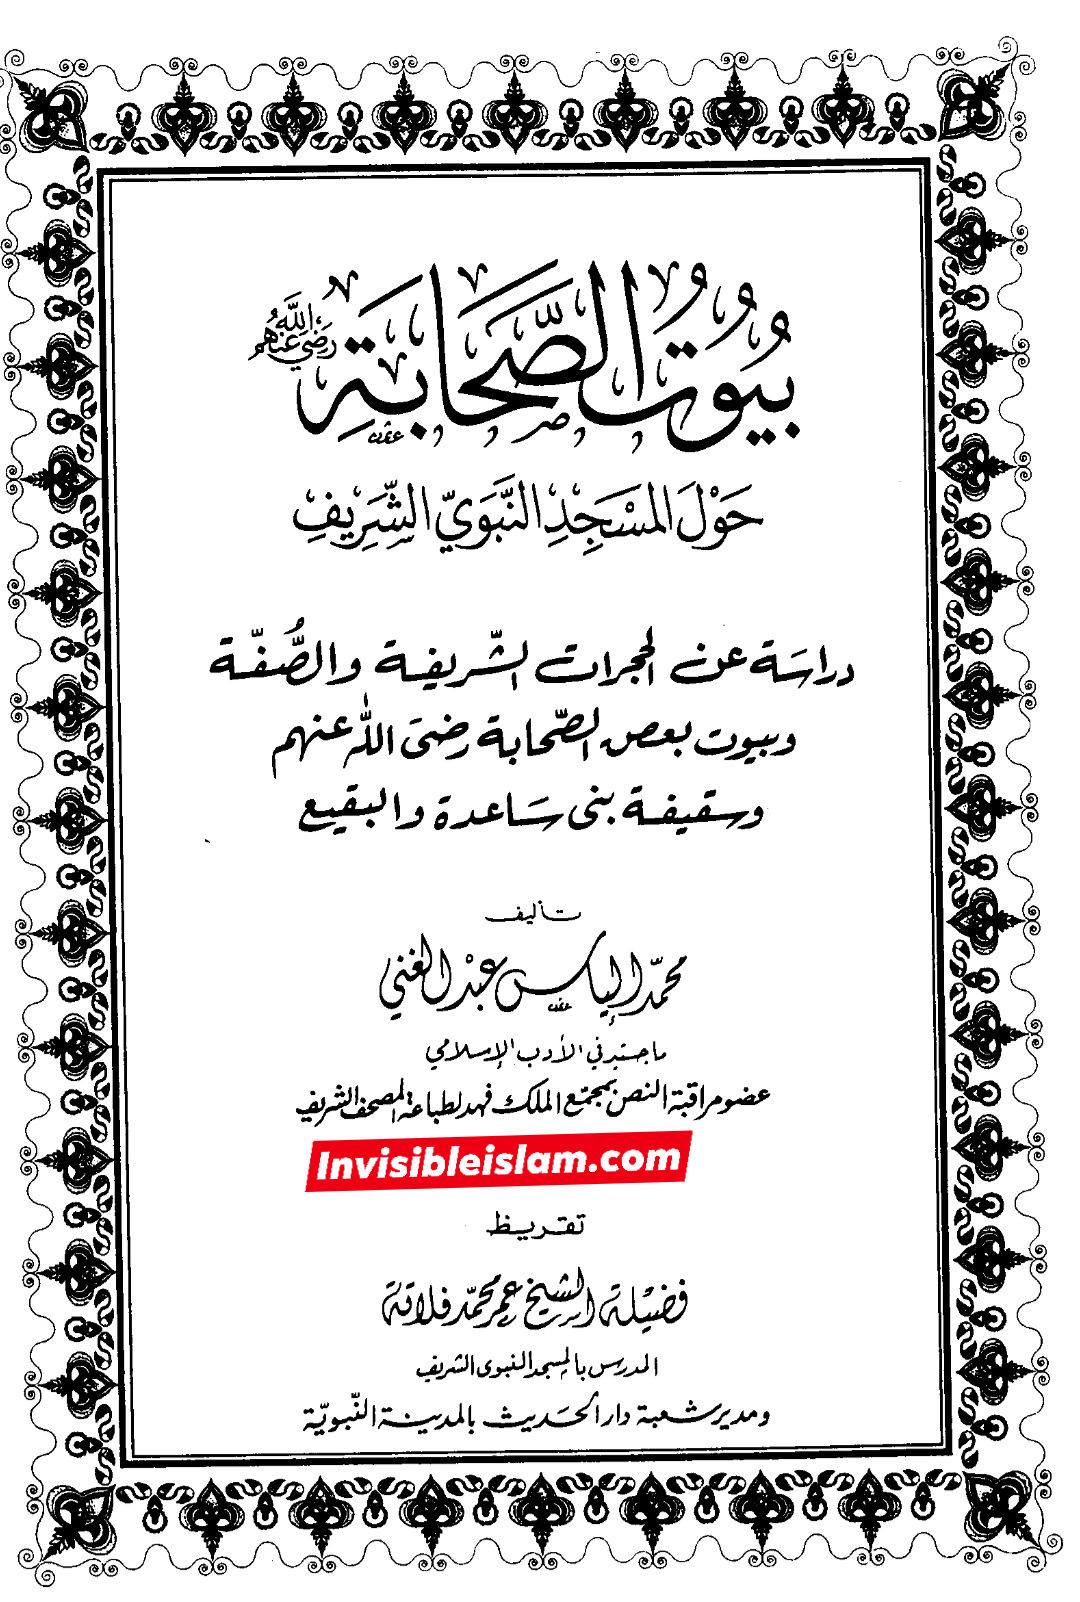 بُيُوتُ الصَّحَابَةِ رَضِيَ اللَّهُ عَنْهُم
حَوْلَ المَسْجِدِ النَّبَوِيِّ الشَّرِيفِ
دراسَة عن الحجرات الشّريفة والصُّفّة
وبيوت بعض الصّحابة رضىَ الله عنهم
وسقيفة بنى سَاعدة والبقيع
تأليف
محمّد إلياس عبد الغني
ماجستير في الأدب الإسلامي
عضو مراقبة النص بمجمّع الملك فهد لطباعة المصحف الشريف
Invisibleislam.com
تقريظ
فضيلة الشيخ عمر محمّد فلاتة
المدرس بالمسجد النبوى الشريف
ومدير شعبة دار الحَديث بالمدينة النّبويّة